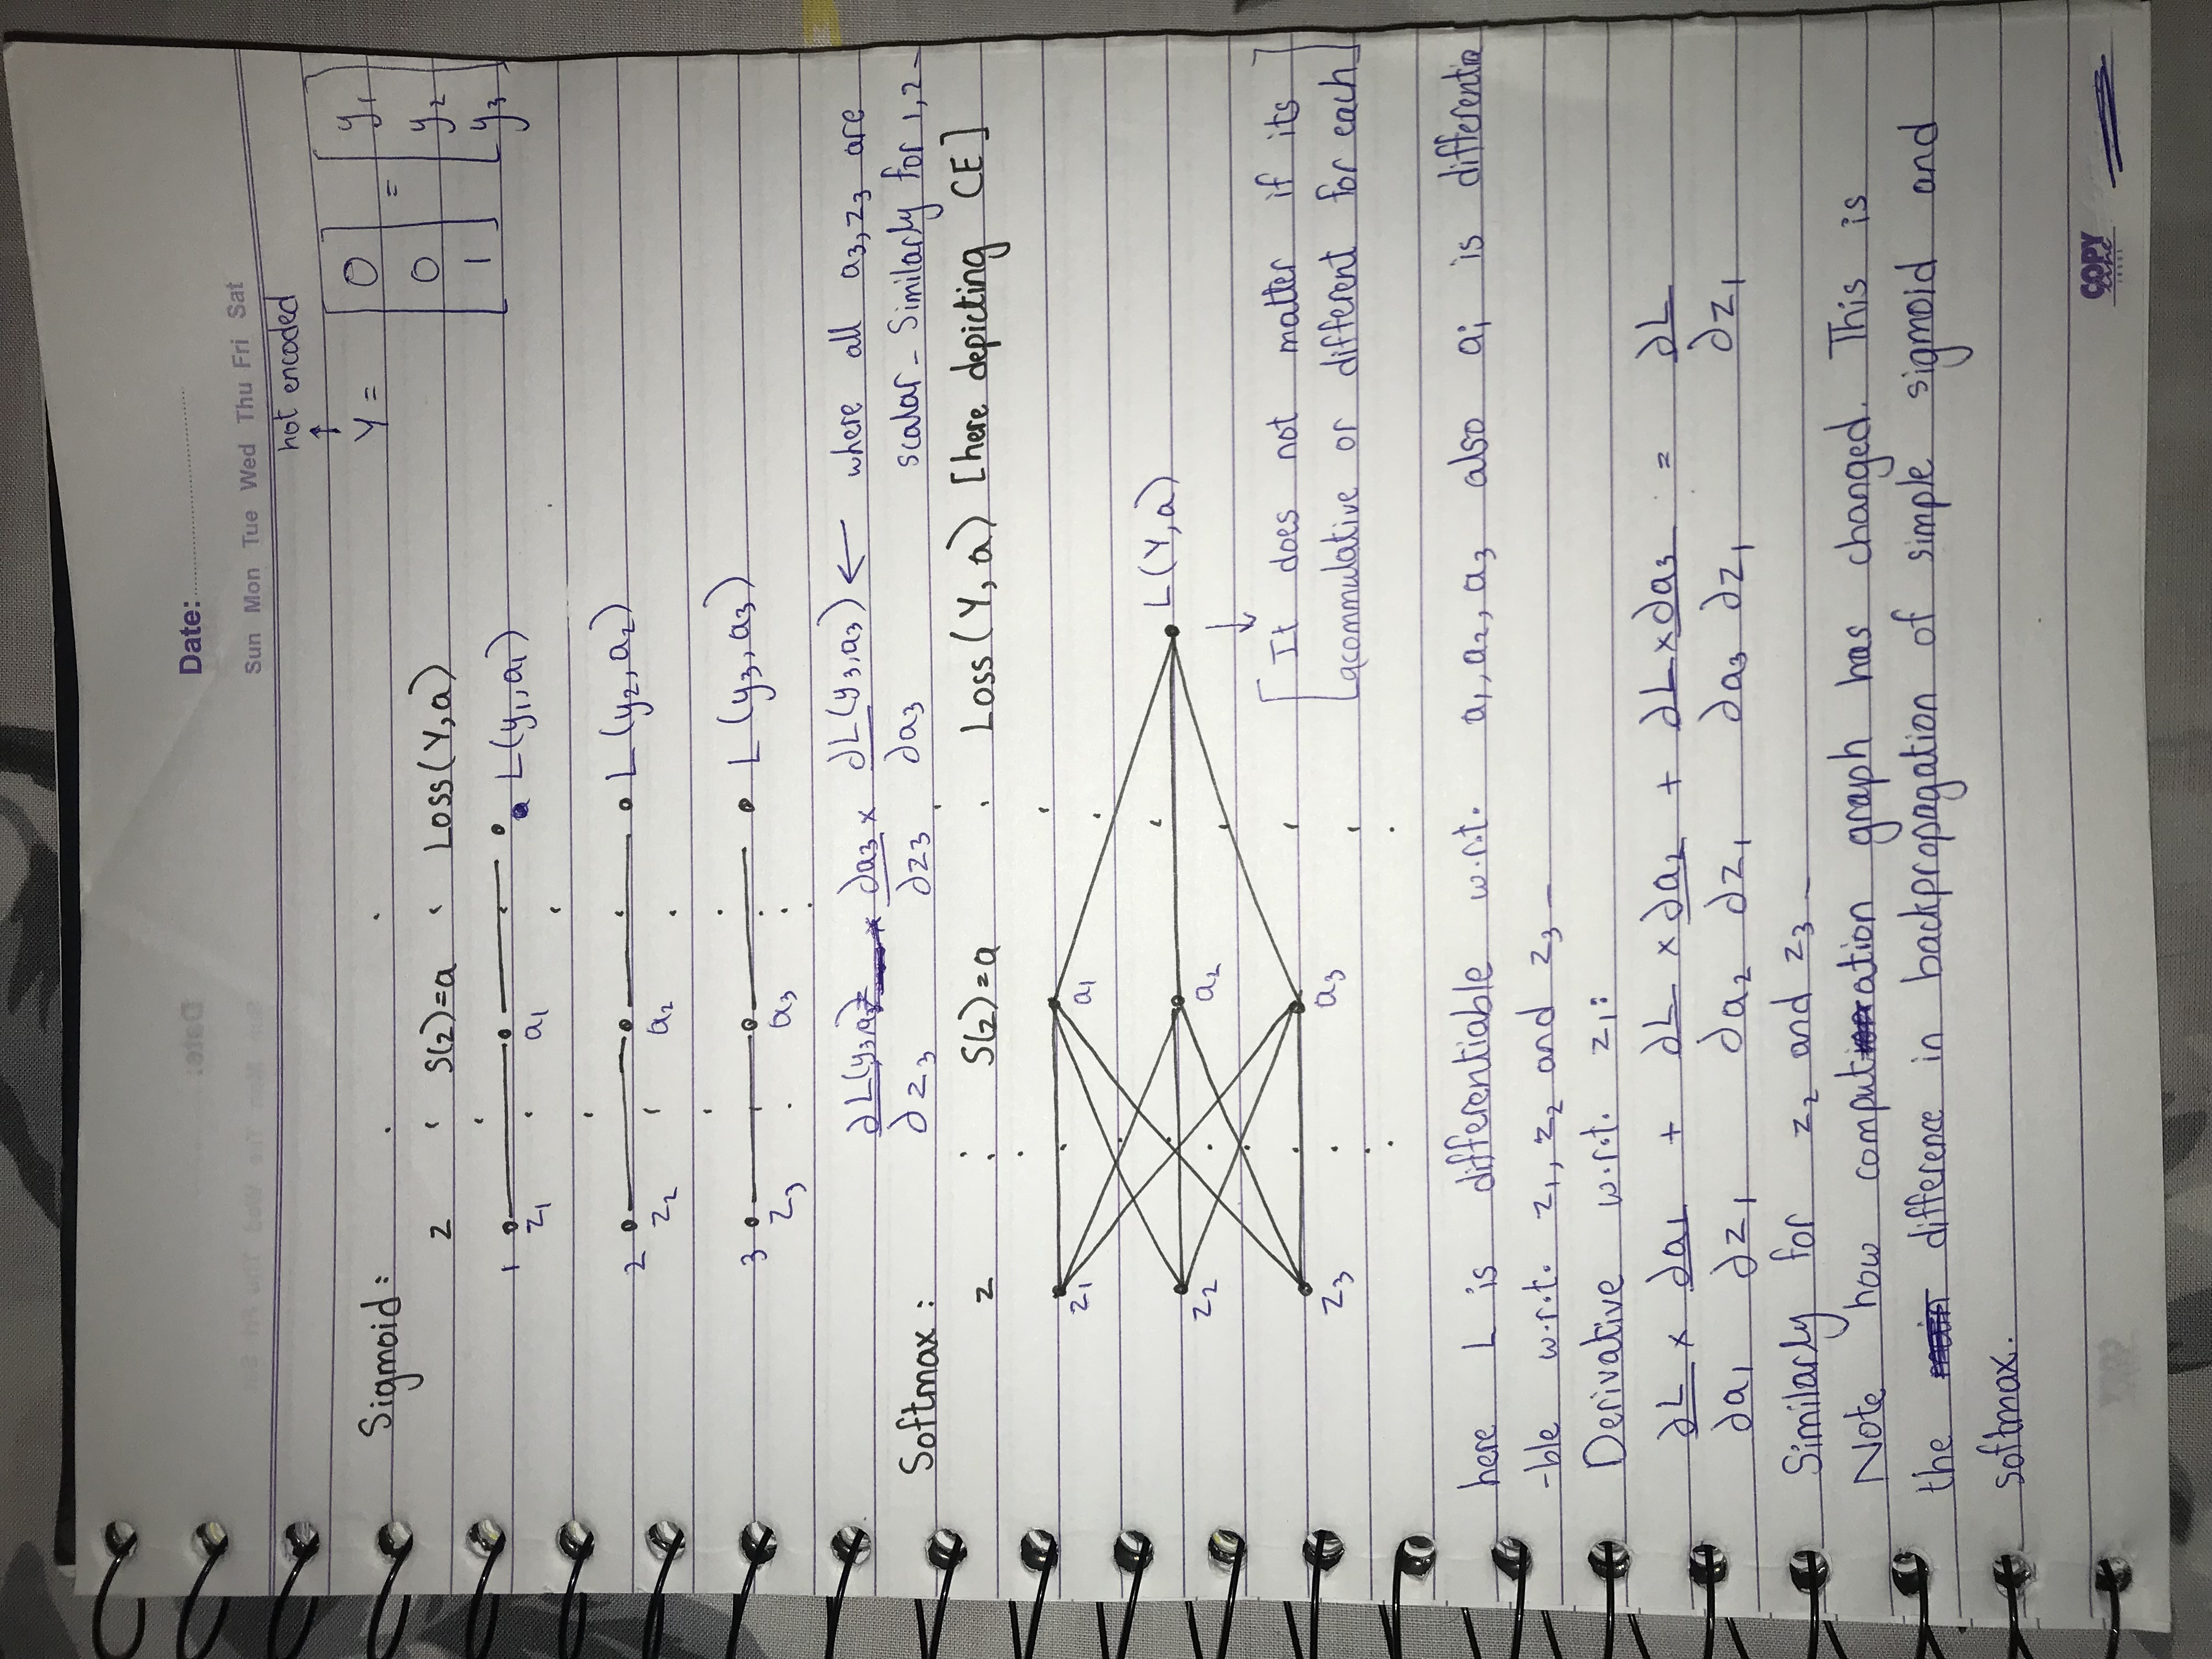 Date:
Sun Mon Tue Wed Thu Fri Sat
hot encoded
↑
Y = [0 0 1] = [y₁ y₂ y₃]
Sigmoid:
z S(z)=a Loss(Y,a)
1 z₁ a₁ L(y₁,a₁)
2 z₂ a₂ L(y₂,a₂)
3 z₃ a₃ L(y₃,a₃)
∂L(y₃,a₃)/∂z₃ = ∂a₃/∂z₃ × ∂L(y₃,a₃)/∂a₃ ← where all a₃,z₃ are
scalar_ Similarly for 1,2_
Softmax:
z S(z)=a Loss(Y,a) [here depicting CE]
z₁ a₁
z₂ a₂ L(Y,a)
z₃ a₃
↓
[It does not matter if its
acommulative or different for each]
here L is differentiable w.r.t. a₁,a₂,a₃ also aᵢ is differentia
-ble w.r.t. z₁,z₂ and z₃_
Derivative w.r.t. z₁:
∂L/∂a₁ × ∂a₁/∂z₁ + ∂L/∂a₂ × ∂a₂/∂z₁ + ∂L/∂a₃ × ∂a₃/∂z₁ = ∂L/∂z₁
Similarly for z₂ and z₃_
Note how computation graph has changed. This is
the main difference in backpropagation of simple sigmoid and
softmax.
COPY
line